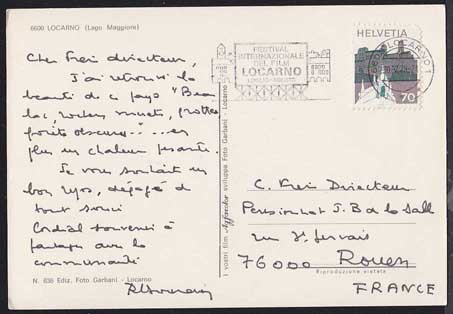 6600 LOCARNO (Lago Maggiore)
Cher Frère directeur,
J'ai retrouvé la
beauté de ce pays "Beau
lac, rochers muets, grottes
forêts obscures" ... en
plus une chaleur pesante.
Je vous souhaite un
bon repos, dégagé de
tout souci
Cordial souvenir à
partager avec la
communauté
N. 636 Ediz. Foto Garbani - Locarno
I vostri film sviluppa Foto Garbani - Locarno
FESTIVAL
INTERNAZIONALE
DEL FILM
LOCARNO
LUGLIO-AGOSTO
6600
LOCARNO 1
HELVETIA
70
C. Frère Directeur
Pensionnat J.B de la Salle
rue St Gervais
76000 Rouen
Riproduzione vietata
FRANCE